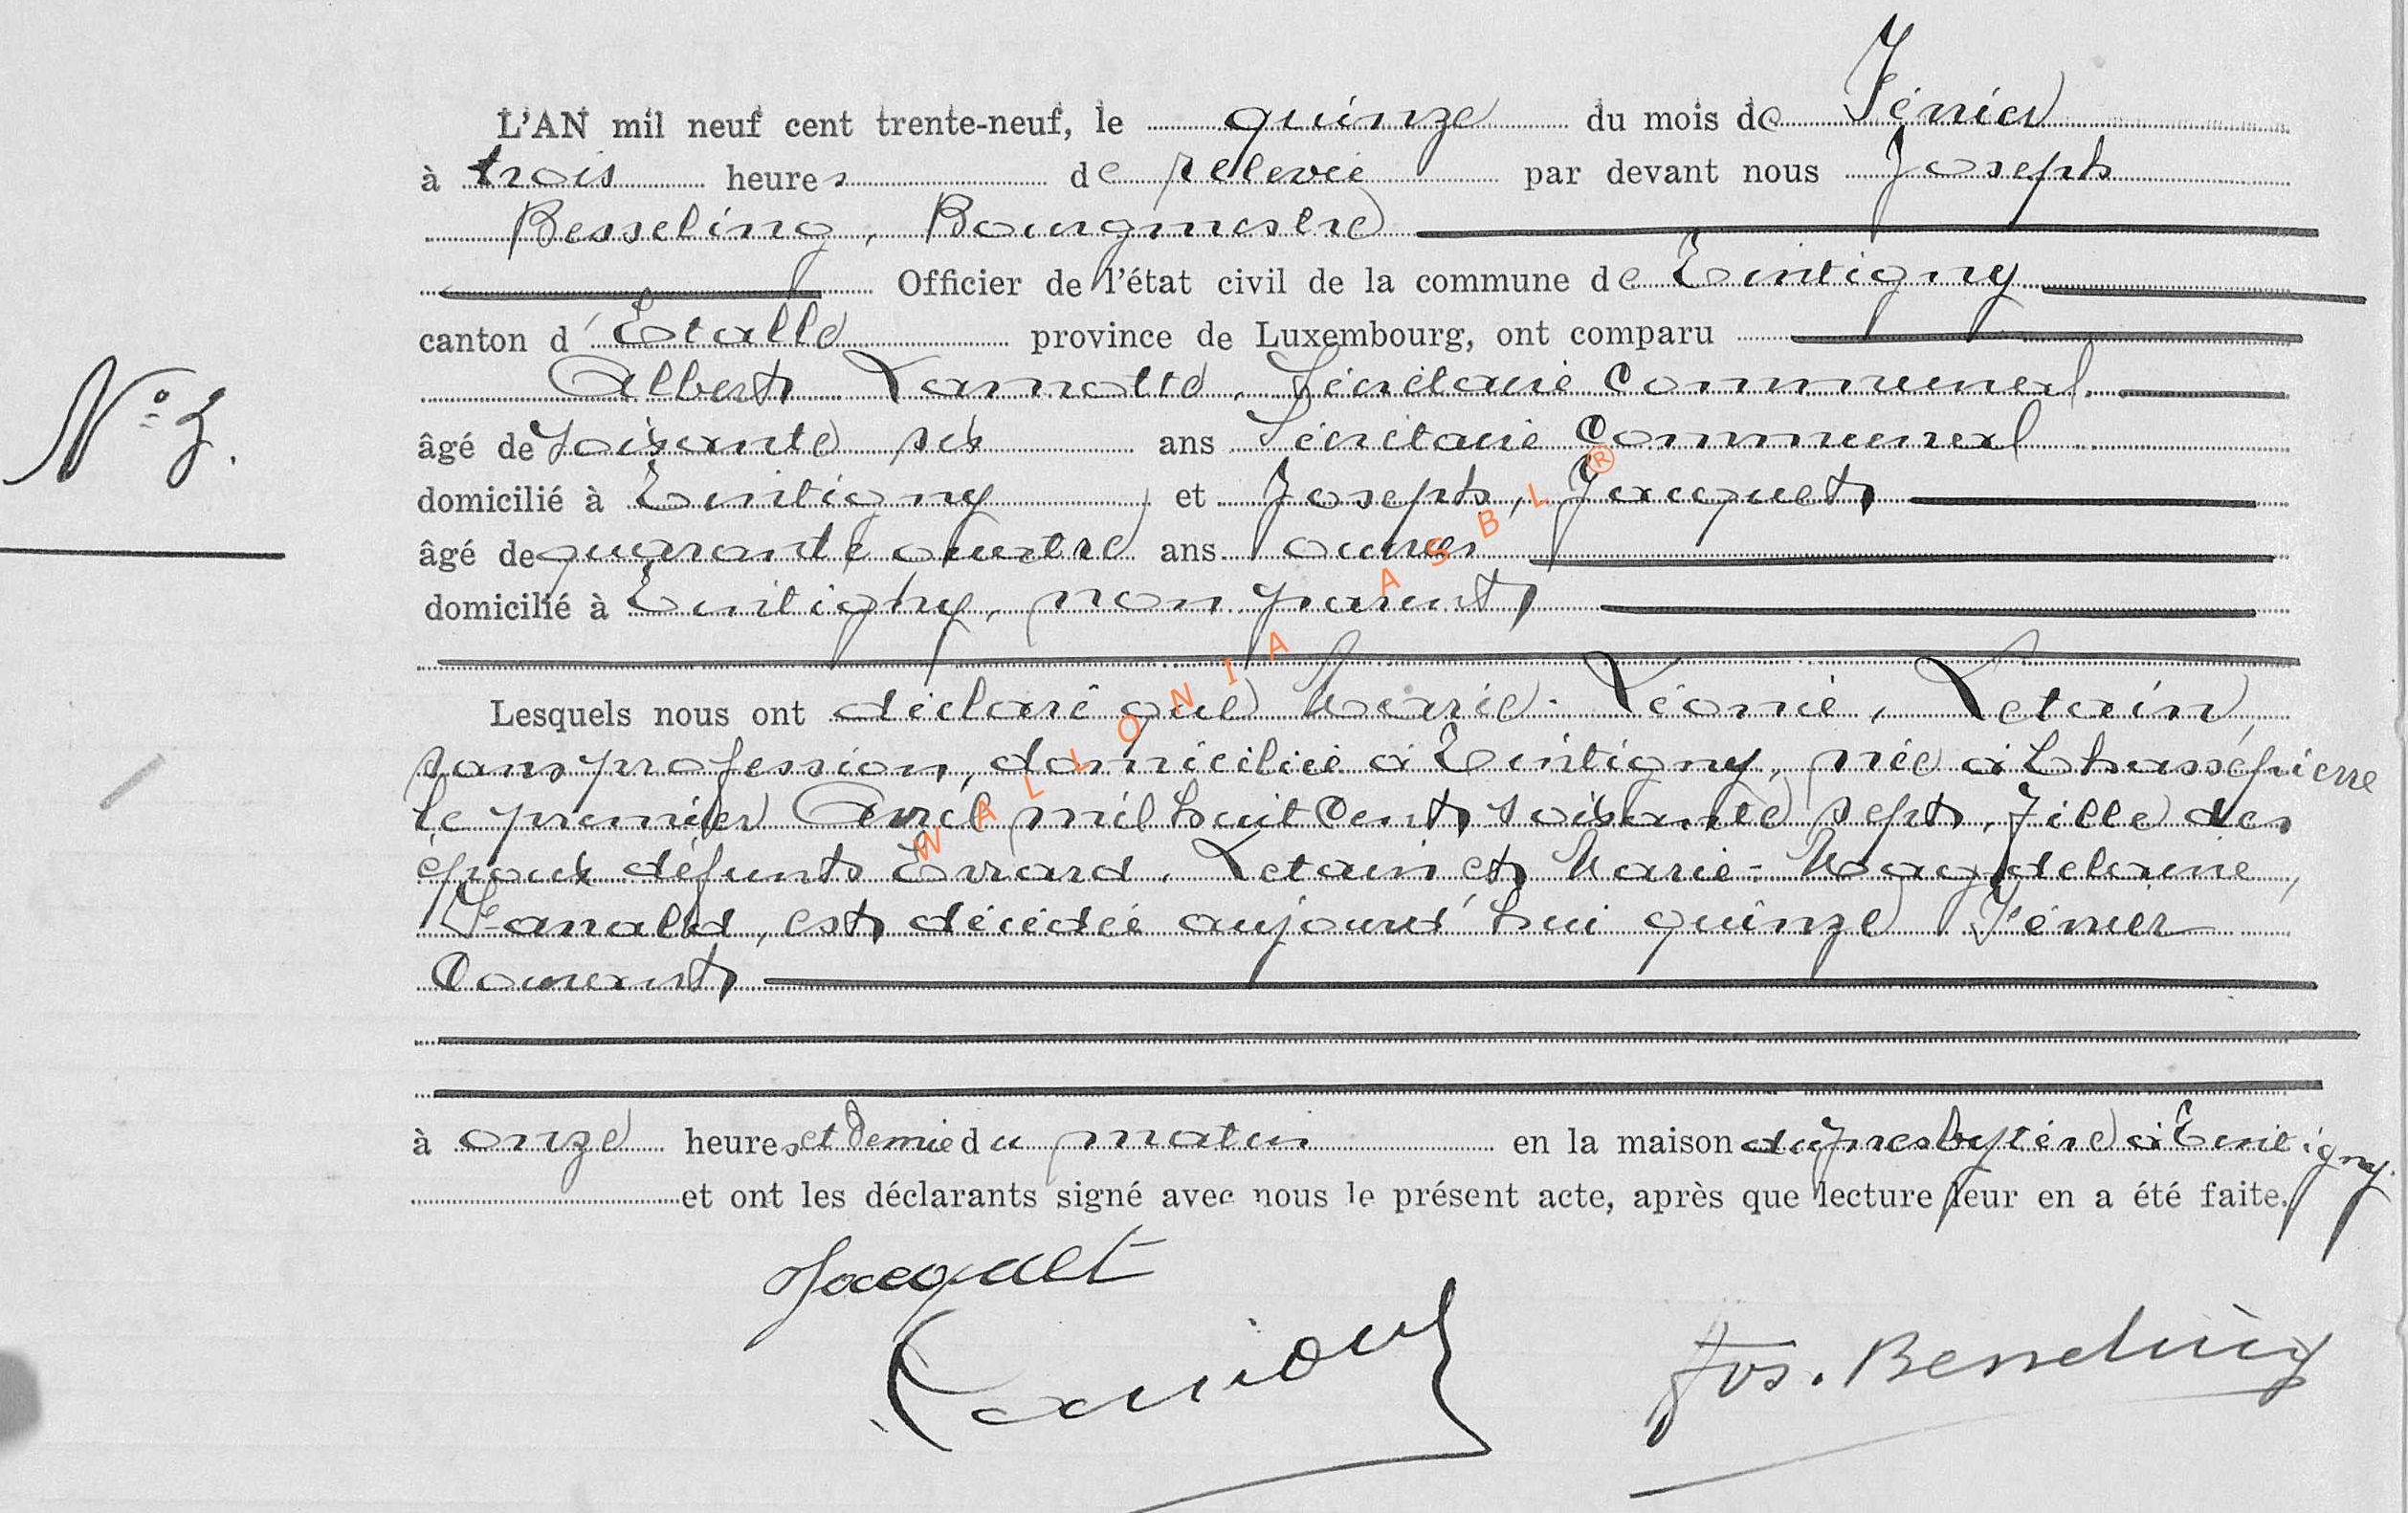 L'AN mil neuf cent trente-neuf, le quinze du mois de Février
à trois heures de relevée par devant nous Joseph
Besseling, Bourgmestre
Officier de l'état civil de la commune de Tintigny
canton d'Etalle province de Luxembourg, ont comparu
Albert Lamotte, Secrétaire Communal.
N° 3.
âgé de soixante six ans Secrétaire Communal
domicilié à Tintigny et Joseph, Jacquet
âgé de quarante quatre ans ouvrier
domicilié à Tintigny, non parents
Lesquels nous ont déclaré que Marie-Léonie, Letain,
sans profession, domiciliée à Tintigny, née à Chassepierre
le premier Avril mil huit Cent soixante sept, fille des
époux défunts Evrard, Letain et Marie-Magdelaine,
est décédée aujourd'hui quinze Février
Courant
à onze heures et demie du matin en la maison du presbytère à Tintigny.
et ont les déclarants signé avec nous le présent acte, après que lecture leur en a été faite.
Jacquet
Jos. Besseling
WALLONIA ASBL ®